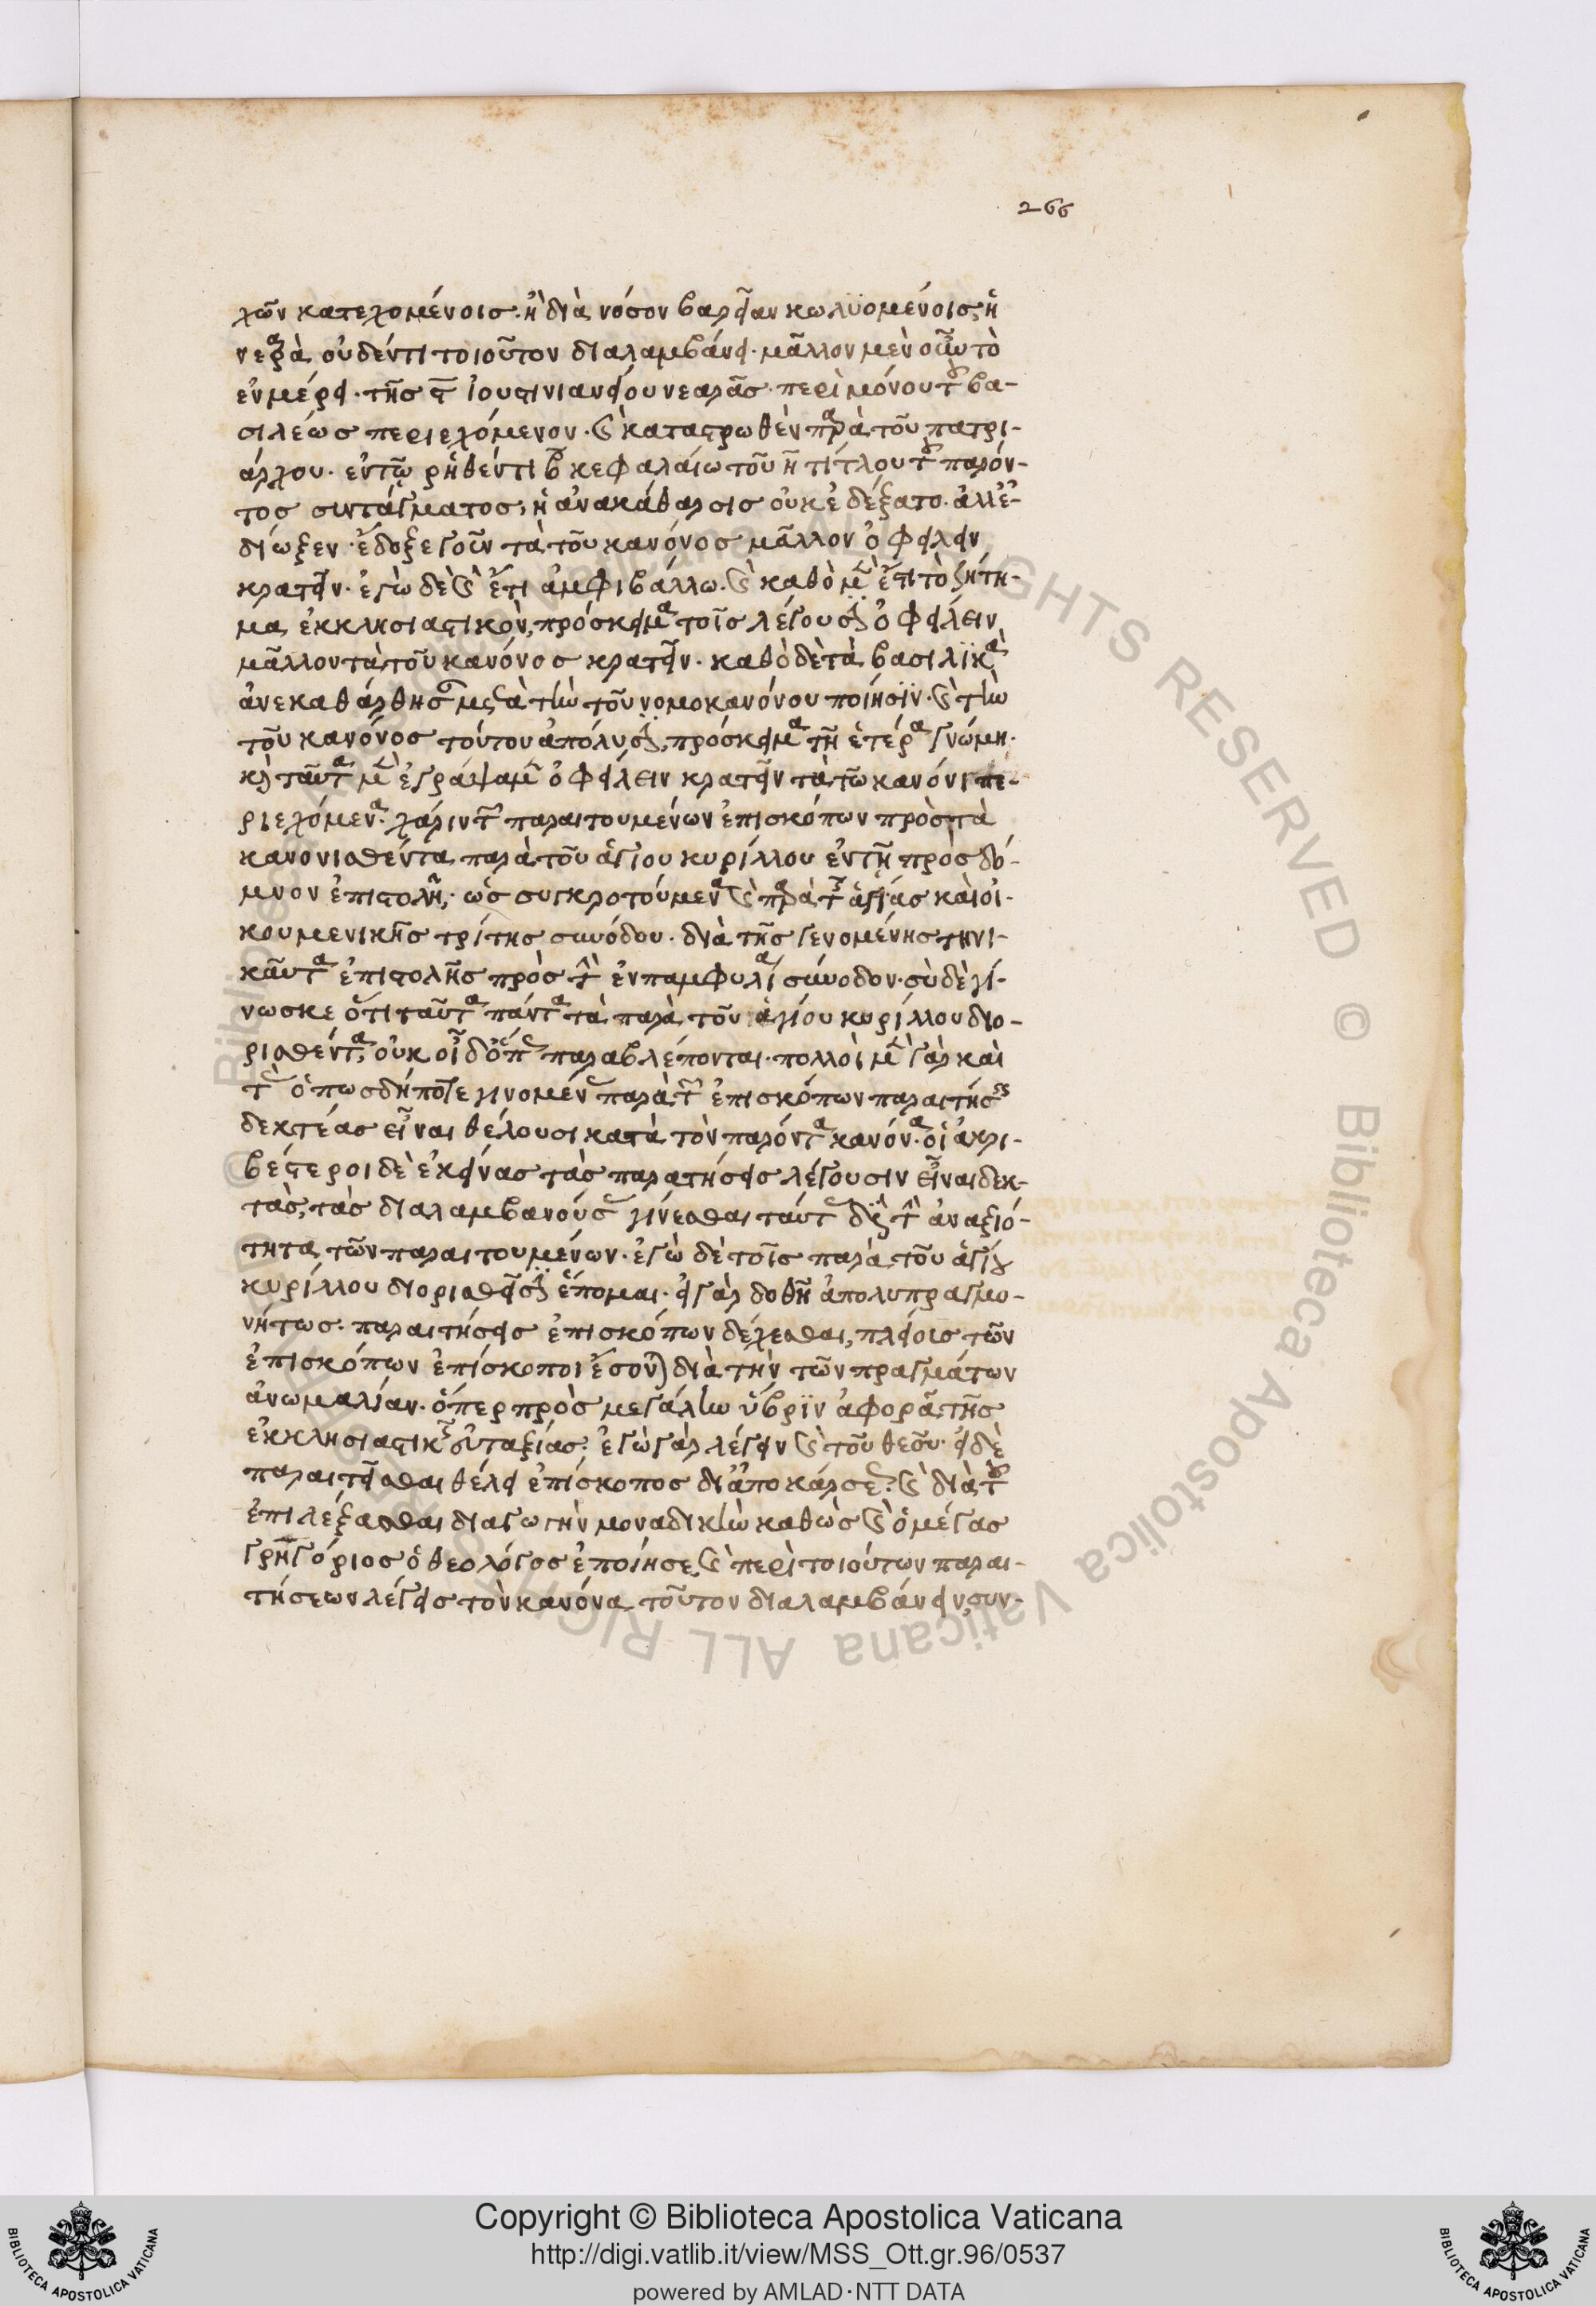 266
χῶν κατεχομένοις· ἢ διὰ νόσον βαρεῖαν κωλϋομένοις· ἡ
νεαρὰ οὐδέν τι τοιοῦτον διαλαμβάνει· μᾶλλον μὲν οὖν τὸ
ἐν μέρει τῆς Ϛ ἰουστινιανείου νεαρᾶς περὶ μόνου τοῦ βα-
σιλέως περιεχόμενον· καὶ καταστρωθὲν παρὰ τοῦ πατρι-
άρχου· ἐν τῷ ῥηθέντι β κεφαλαίω τοῦ η τίτλου τοῦ παρόν-
τος συντάγματος, ἡ ἀνακάθαρσις οὐκ ἐδέξατο· ἀλλ' ἐ-
δίωξεν· ἔδοξε γοῦν τὰ τοῦ κανόνος μᾶλλον ὀφείλειν
κρατεῖν· ἐγὼ δὲ καὶ ἔτι ἀμφιβάλλω· καὶ καθὸ μὲν ἔστι τὸ ζήτη-
μα ἐκκλησιαστικὸν, πρόσκειμαι τοῖς λέγουσιν ὀφείλειν
μᾶλλον τὰ τοῦ κανόνος κρατεῖν· καθὸ δὲ τὰ βασιλϊκὰ
ἀνεκαθάρθησαν μετὰ τὴν τοῦ νομοκανόνου ποίησϊν· καὶ τὴν
τοῦ κανόνος τούτου ἀπόλυσιν, πρόσκειμαι τῆ ἑτέρα γνώμη·
καὶ ταῦτα μὲν ἐγράψαμεν ὀφείλειν κρατεῖν τὰ τῶ κανόνι πε-
ριεχόμενα· χάριν τῶν παραιτουμένων ἐπισκόπων πρὸς τὰ
κανονισθέντα παρὰ τοῦ ἁγίου κυρίλλου ἐν τῆ πρὸς δό-
μνον ἐπιστολῆ· ὡς συγκροτούμενα καὶ παρὰ τῆς ἁγίας καὶ οἰ-
κουμενικῆς τρίτης συνόδου· διὰ τῆς γενομένης τηνι-
καῦτα ἐπιστολῆς πρὸς τὴν ἐν παμφυλία σύνοδον· σὺ δὲ γί-
νωσκε ὅτι ταῦτα πάντα τὰ παρὰ τοῦ ἁγίου κυρίλλου διο-
ρισθέντα, οὐκ οἶδ' ὅπως παραβλέπονται· πολλοὶ μὲν γὰρ καὶ
τὰς ὁπωσδήποτε γινομένας παρὰ τῶν ἐπισκόπων παραιτήσεις
δεκτέας εἶναι θέλουσι κατὰ τὸν παρόντα κανόνα· οἱ ἀκρι-
βέστεροι δὲ ἐκείνας τὰς παρατήσεις λέγουσιν εἶναι δεκ-
τὰς, τὰς διαλαμβανούσας γίνεσθαι ταύτας διὰ τὴν ἀναξιό-
τητα τῶν παραιτουμένων· ἐγὼ δὲ τοῖς παρὰ τοῦ ἁγίου
κυρίλλου διορισθεῖσιν ἕπομαι· εἰ γὰρ δοθῆ ἀπολυπραγμο-
νήτως παραιτήσεις ἐπισκόπων δέχεσθαι, πλείοις τῶν
ἐπισκόπων ἐπίσκοποι ἔσονται διὰ τὴν τῶν πραγμάτων
ἀνωμαλίαν· ὅπερ πρὸς μεγάλην ὕβρϊν ἀφορᾶ τῆς
ἐκκλησιαστικῆς εὐταξίας· ἐγὼ γὰρ λέγειν καὶ τοῦ θεοῦ· εἰ δὲ
παραιτεῖσθαι θέλει ἐπίσκοπος δι' ἀποκάρσεως καὶ διὰ τοῦ
ἐπιλέξασθαι διαγωγὴν μοναδικὴν καθὼς καὶ ὁ μέγας
γρηγόριος ὁ θεολόγος ἐποίησε, καὶ περὶ τοιούτων παραι-
τήσεων λέγεις τὸν κανόνα τοῦτον διαλαμβάνειν, συν-
Copyright © Biblioteca Apostolica Vaticana
http://digi.vatlib.it/view/MSS_Ott.gr.96/0537
powered by AMLAD·NTT DATA